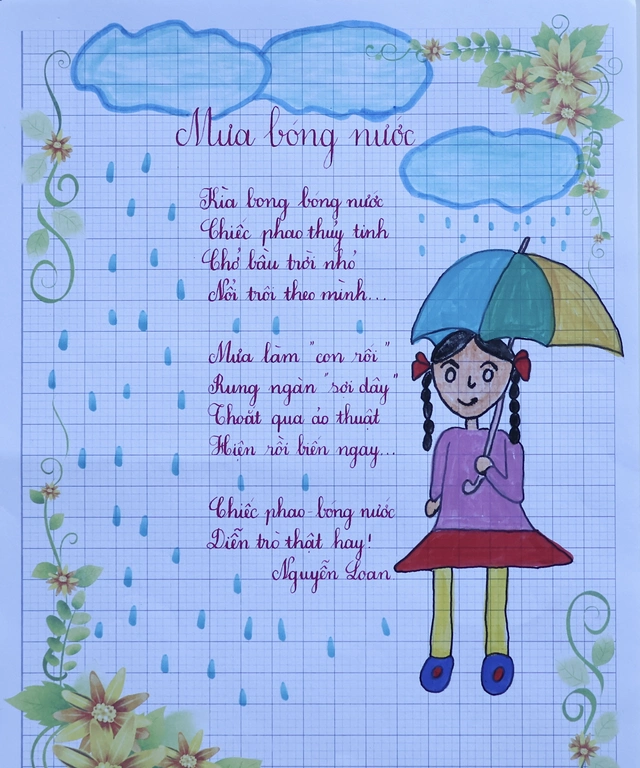 Mưa bóng nước
Kìa bong bóng nước
Chiếc phao thuỷ tinh
Chở bầu trời nhỏ
Nổi trôi theo mình...
Mưa làm "con rối"
Rung ngàn "sợi dây"
Thoắt qua ảo thuật
Hiện rồi biến ngay...
Chiếc phao bóng nước
Diễn trò thật hay!
Nguyễn Loan